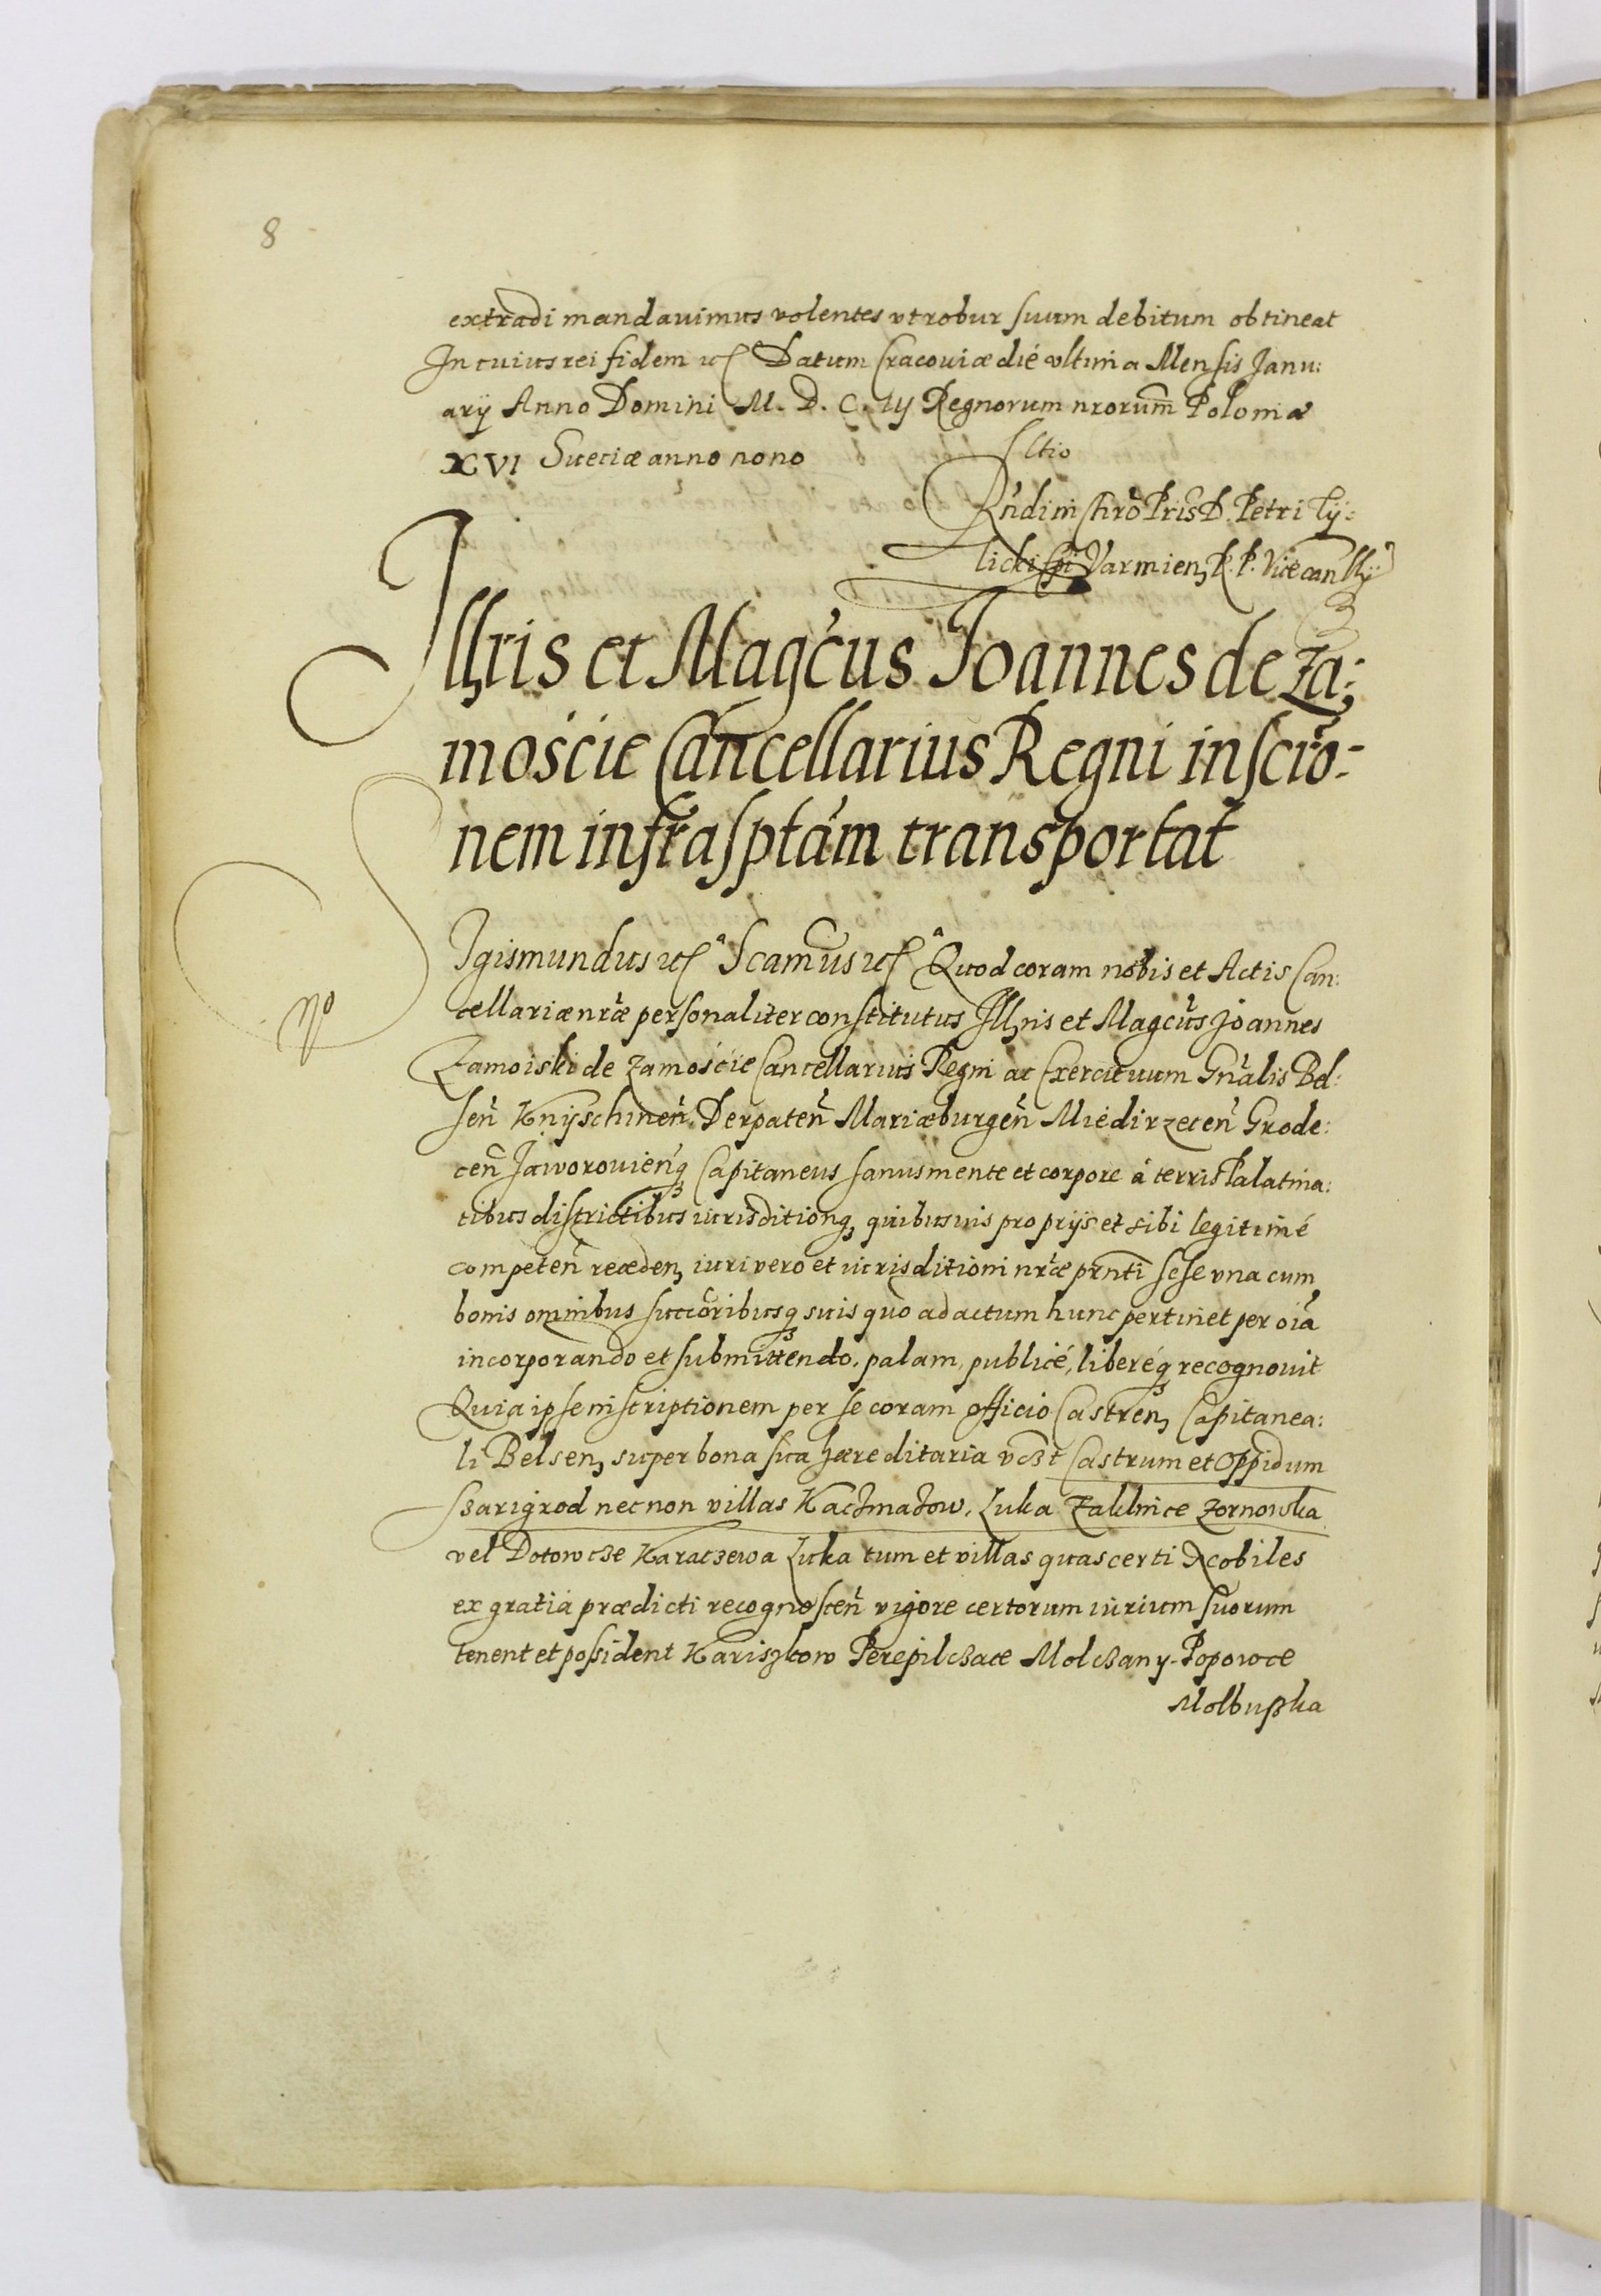 8
extradi mandauimus volentes vt robur suum debitum obtineat
In cuius rei fidem etc Datum Cracouiæ dié vltima Mensis Janu:
arij Anno Domini M. D. C. iij Regnorum nrorum Poloniæ
XVI Sueciæ anno nono
Rndi in Chro Pris D. Petri Tÿ:
licki Epi Varmien R. P. Vicecanllÿ
Illris et Magcus Joannes de Za:
moście Cancellarius Regni inscrio:
nem infrasptam transportat
Sigismundus etc Scamus etc Quod coram nobis et Actis Can:
cellariæ nræ personaliter constitutus Illris et Magcus Joannes
Zamoiski de Zamoście Cancellarius Regni ac Exercituum Gnalis Bel:
sen Knyschinen Derpaten Mariæburgen Miedirzecen Grode:
cen Jaworouienq Capitaneus sanus mente et corpore á terris Palatina:
tibus districtibus iurisditionq quibusuis proprijs et sibi legitimé
competen recæden iuri vero et iurisditioni nræ prnti sese vna cum
bonis omnibus succoribusq suis quo ad actum hunc pertinet per oia
incorporando et submittendo, palam, publicé, liberéq recognouit
Quia ipse inscriptionem per se coram officio Castren Capitanea:
li Belsen super bona sua hæreditaria vczt Castrum et Oppidum
Szarigrod nec non villas Kaczmazow, Luka Zaklince Zornowka
vel Dotowcze Karaczewa Luka tum et villas quas certi Nobiles
ex gratia prædicti recognoscen vigore certorum iurium suorum
tenent et possident Kariszkow Perepilczace Molczany Popowce
Molbuszka